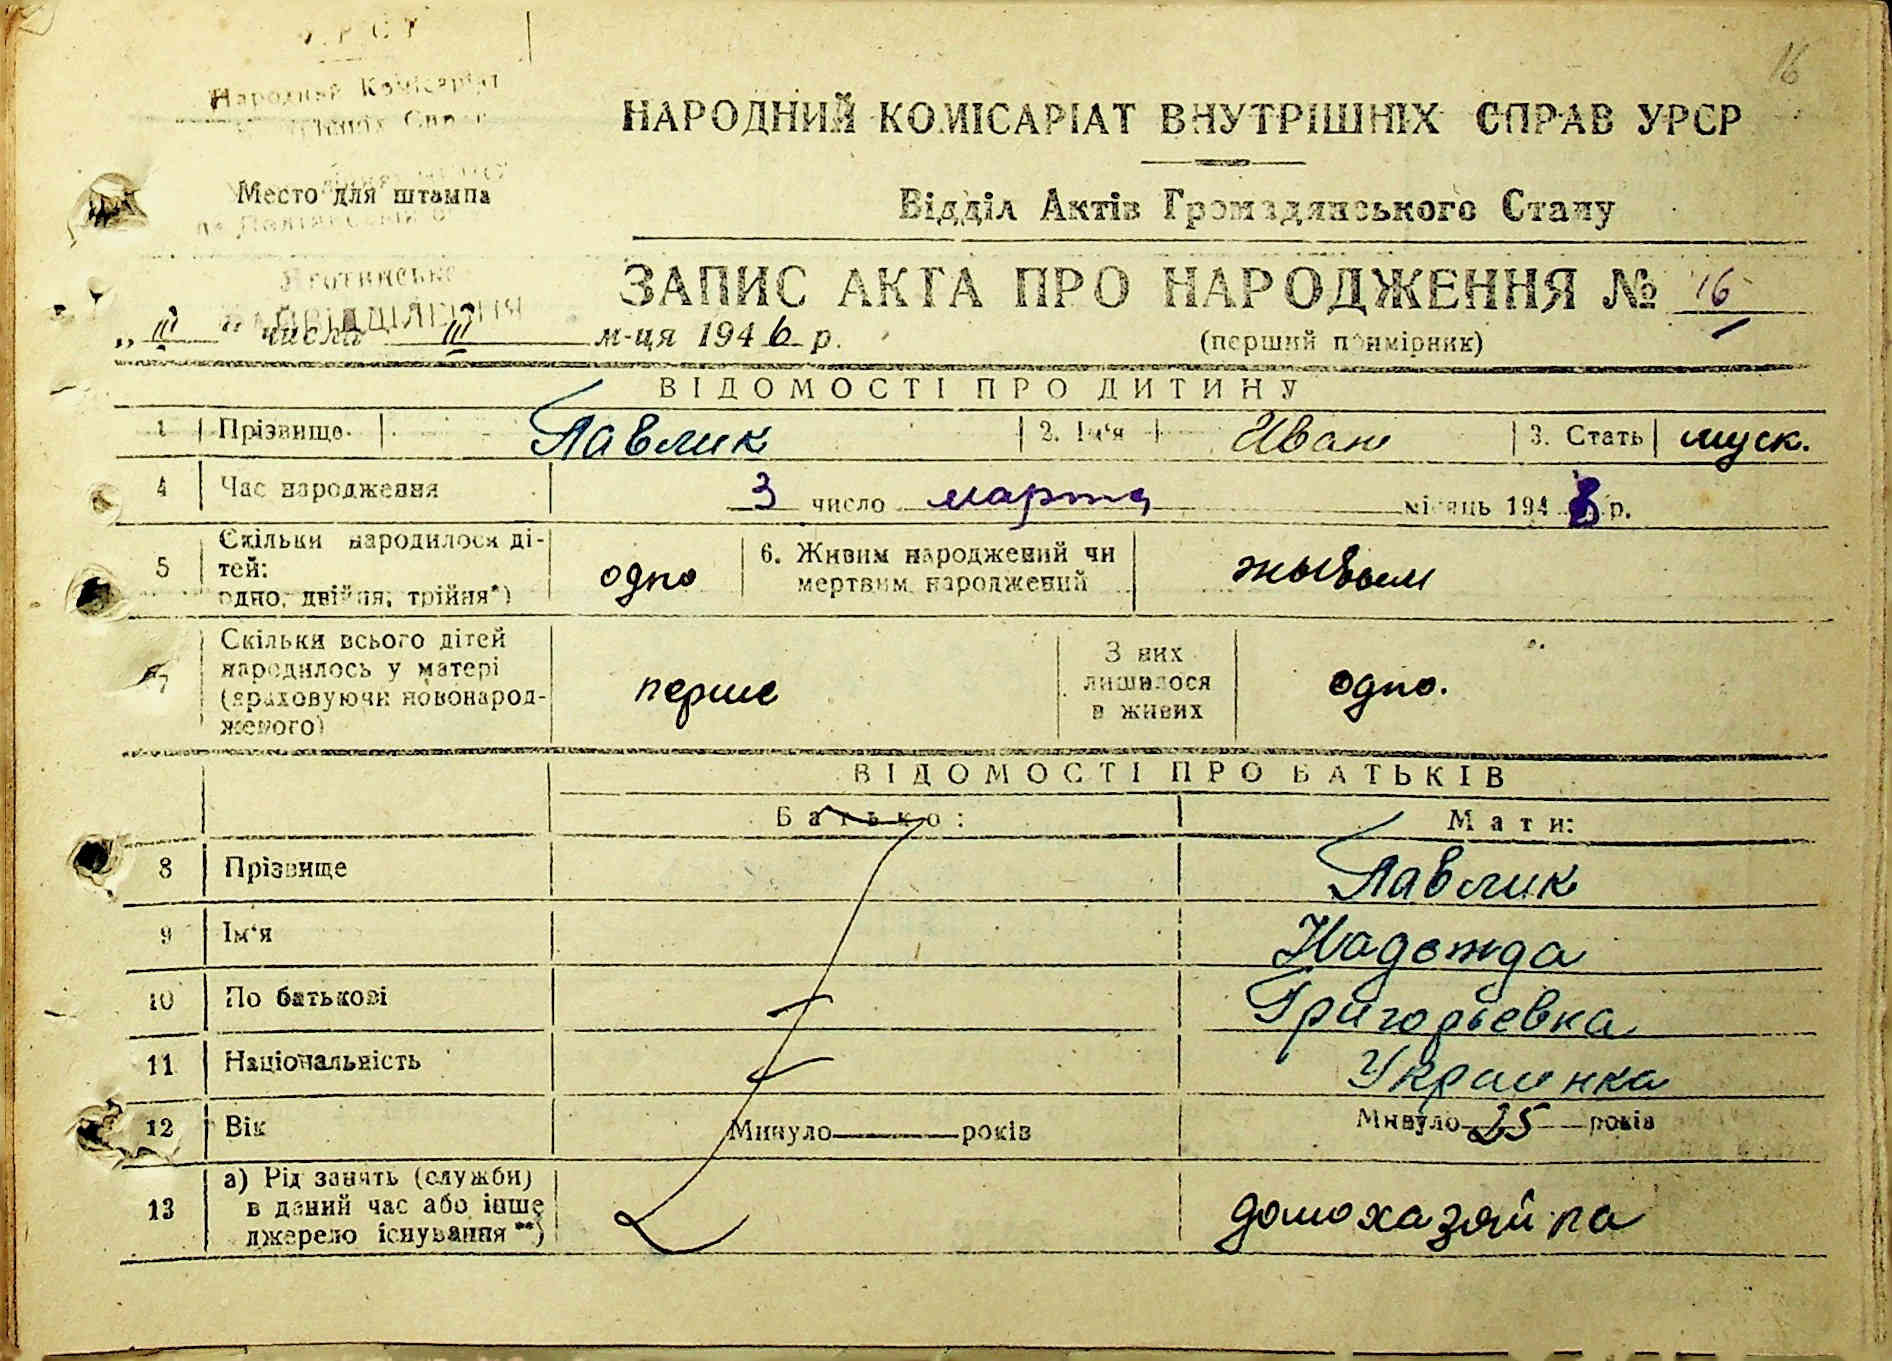 16
Народний Комісаріат
НАРОДНИЙ КОМІСАРІАТ ВНУТРІШНІХ СПРАВ УРСР
Место для штампа
Відділ Актів Громадянського Стану
ЗАПИС АКТА ПРО НАРОДЖЕННЯ № 16
числа III м-ця 1946 р.
(перший примірник)
ВІДОМОСТІ ПРО ДИТИНУ
1 Прізвище Павлик 2. Ім'я Иван 3. Стать муск.
4 Час народження 3 число марта місяць 194 р.
5 Скільки народилося ді-
тей:
одно, двійня, трійня*) одно 6. Живим народжений чи
мертвим народжений жывым
7 Скільки всього дітей
народилось у матері
(враховуючи новонарод-
женого) перше З них
лишилося
в живих одно.
ВІДОМОСТІ ПРО БАТЬКІВ
Батько: Мати:
8 Прізвище Павлик
9 Ім'я Надежда
10 По батькові Григорьевна
11 Національність Украинка
12 Вік Минуло — років Минуло 25 років
13 а) Рід занять (служби)
в даний час або інше
джерело існування **) домохазяйна